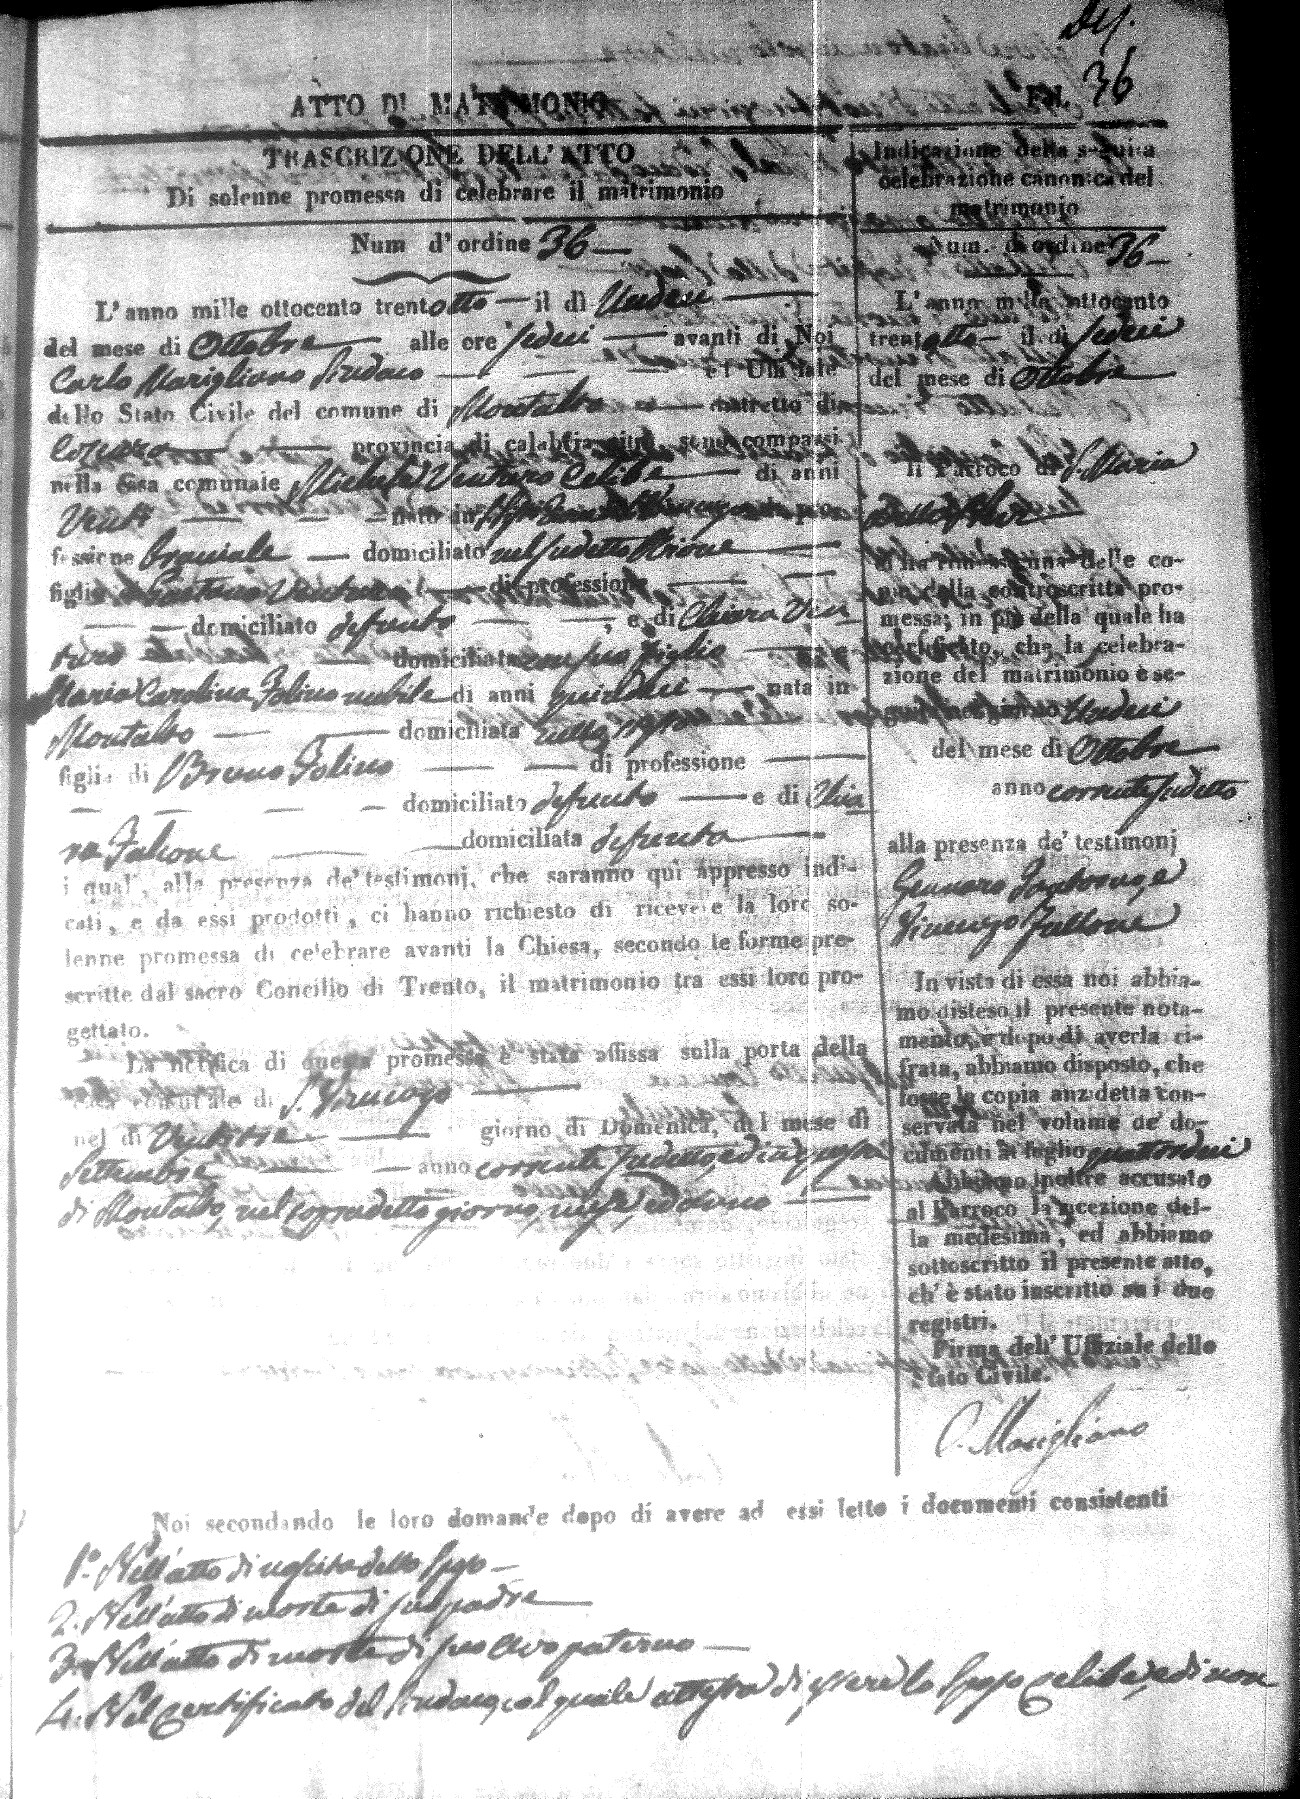 36
ATTO DI MATRIMONIO
TRASCRIZIONE DELL'ATTO
Di solenne promessa di celebrare il matrimonio
Num d'ordine 36
L'anno mille ottocento trentotto il dì Undeci
del mese di Ottobre alle ore sedeci avanti di Noi
Carlo Marigliano Sindaco
dello Stato Civile del comune di Montalto
provincia di calabria citra, sono comparsi
nella casa comunale Michele Venturo Celibe di anni
Venti nato in
fessione braciale domiciliato nel sudetto Rione
figlio di Gaetano Venturo di professione
domiciliato defunto, e di Chiara Ven
turo domiciliata con suo figlio
Maria Carolina Folino nubile di anni quindeci nata in
Montalto domiciliata
figlia di Bruno Folino di professione
domiciliato defunto e di Chia
ra Falcone domiciliata defunta
i quali, alla presenza de' testimonj, che saranno qui appresso indi-
cati, e da essi prodotti, ci hanno richiesto di ricevere la loro so-
lenne promessa di celebrare avanti la Chiesa, secondo le forme pre-
scritte dal sacro Concilio di Trento, il matrimonio tra essi loro pro-
gettato.
La notifica di questa promessa è stata affissa sulla porta della
casa comunale di S. Vincenzo
nel dì Ventitre giorno di Domenica, del mese di
Settembre anno corrente sudetto, ed in questa
di Montalto nel sopradetto giorno, mese, ed anno
Indicazione della seguita
celebrazione canonica del
matrimonio
Num. d'ordine 36
L'anno mille ottocento
trentotto il dì sedeci
del mese di Ottobre
Il Parroco di S. Maria
delle co-
pie della controscritta pro-
messa; in piè della quale ha
certificato, che la celebra-
zione del matrimonio è se-
Undeci
del mese di Ottobre
anno corrente sudetto
alla presenza de' testimonj
Gennaro
Vincenzo Fallone
In vista di essa noi abbia-
mo disteso il presente nota-
mento, e dopo di averla ci-
frata, abbiamo disposto, che
fosse la copia anzidetta con-
servata nel volume de' do-
cumenti al foglio quattordeci
Abbiamo inoltre accusato
al Parroco la ricezione del-
la medesima, ed abbiamo
sottoscritto il presente atto,
ch'è stato inscritto su i due
registri.
Firma dell' Uffiziale dello
Stato Civile.
C. Marigliano
Noi secondando le loro domande dopo di avere ad essi letto i documenti consistenti
1.° Nell'atto di nascita dello Sposo
2. Nell'atto di morte di suo padre
3. Nell'atto di morte di suo avo paterno
4. Nel certificato del Sindaco, col quale attesta di essere lo Sposo celibe, e di non